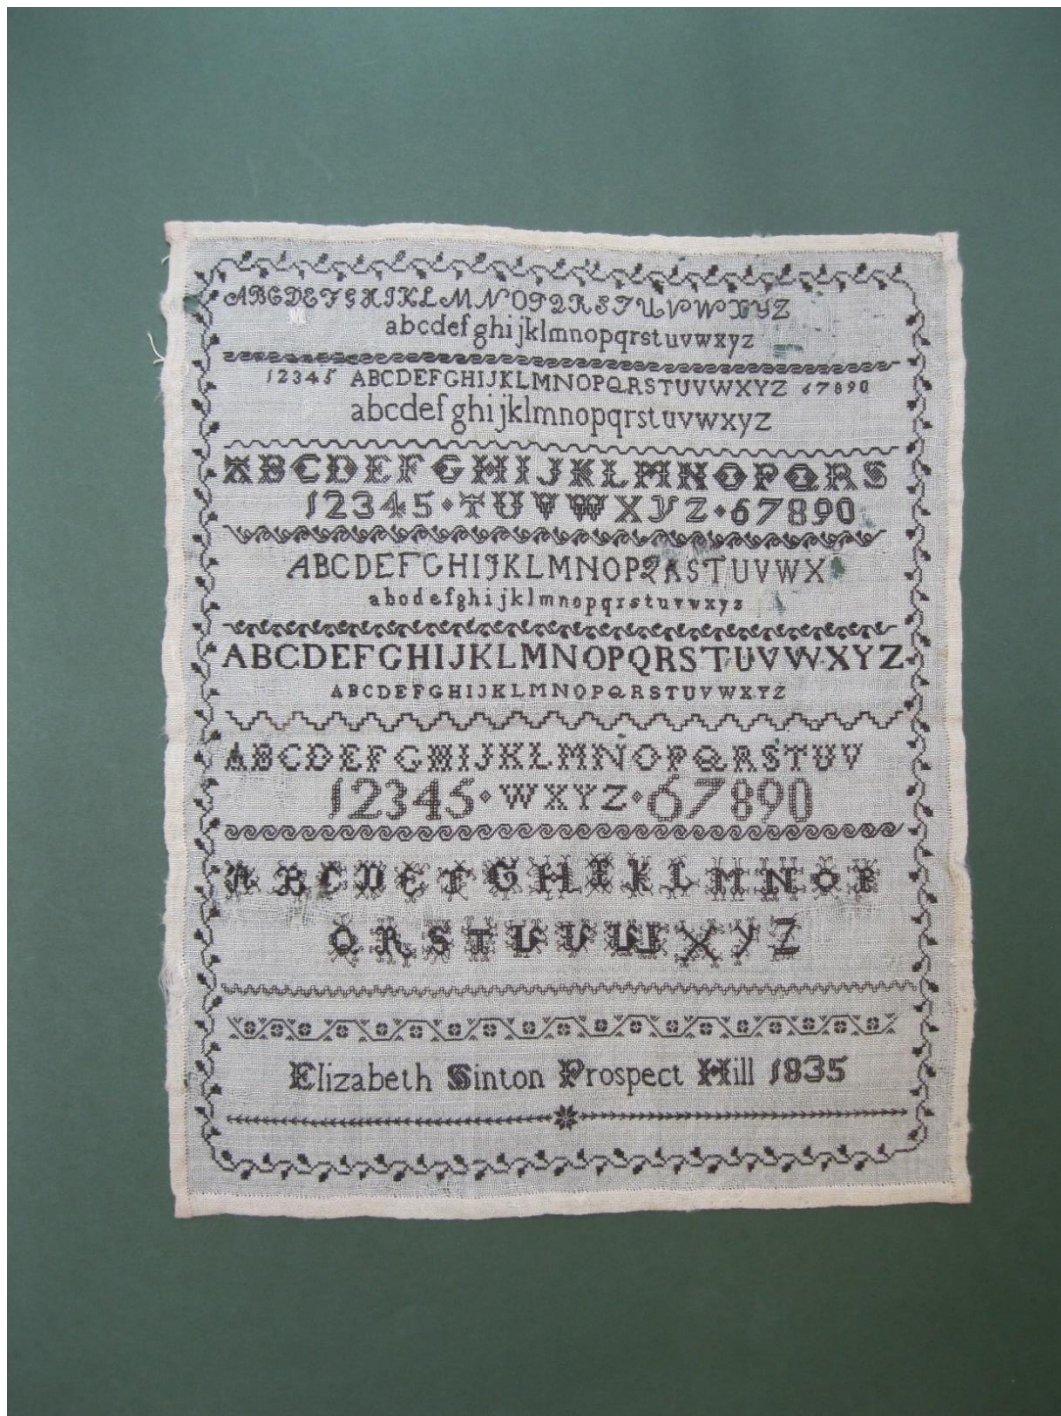 ABCDEFGHIJKLMNOPQRSTUVWXYZ
abcdefghijklmnopqrstuvwxyz
12345 ABCDEFGHIJKLMNOPQRSTUVWXYZ 67890
abcdefghijklmnopqrstuvwxyz
ABCDEFGHIJKLMNOPQRS
12345·TUVWXYZ·67890
ABCDEFGHIJKLMNOPQRSTUVWX
abcdefghijklmnopqrstuvwxyz
ABCDEFGHIJKLMNOPQRSTUVWXYZ
ABCDEFGHIJKLMNOPQRSTUVWXYZ
ABCDEFGHIJKLMNOPQRSTUV
12345·WXYZ·67890
ABCDEFGHIKLMNOP
QRSTUVWXYZ
Elizabeth Sinton Prospect Hill 1835